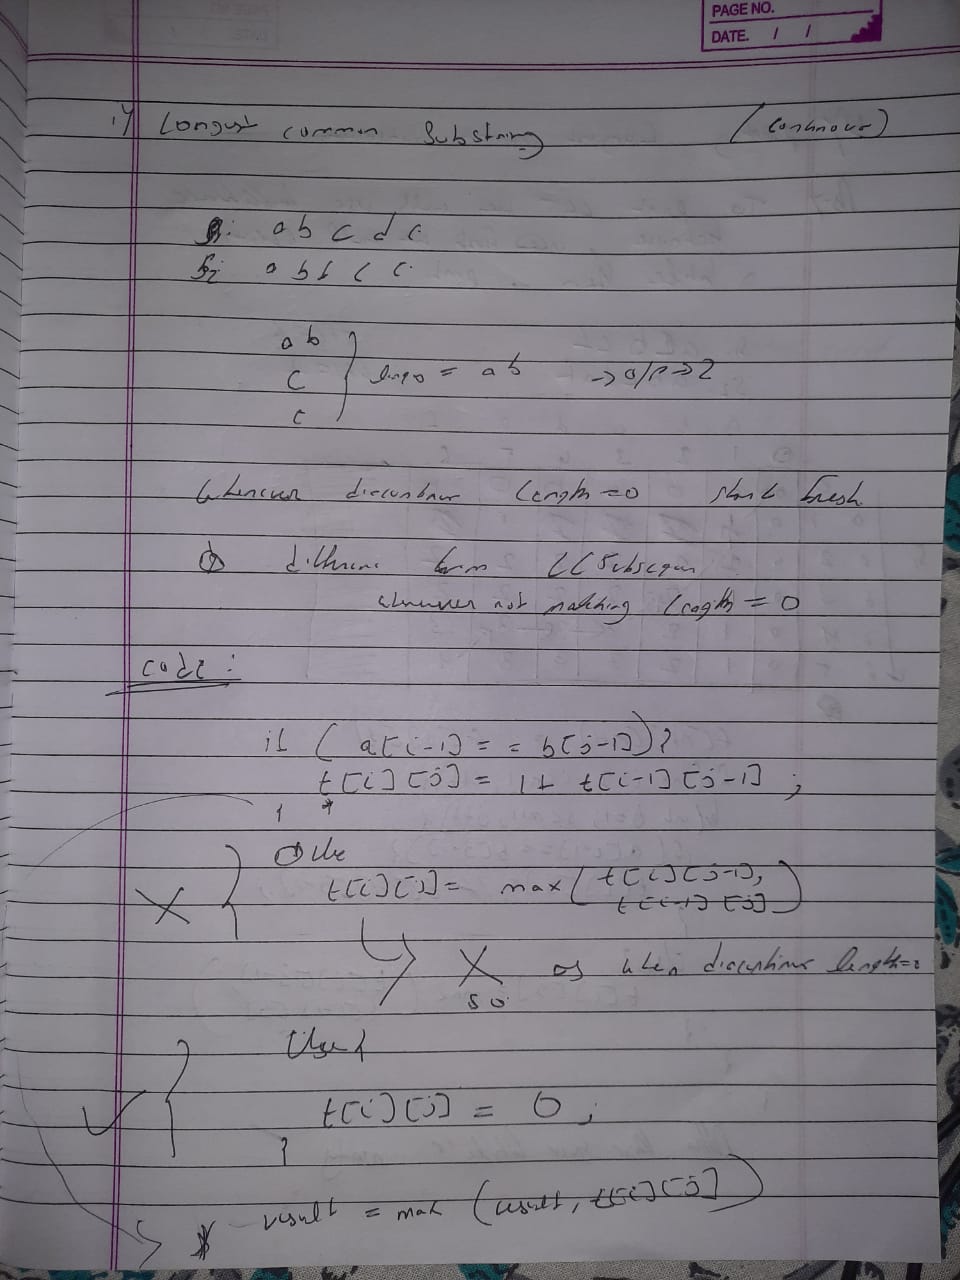 PAGE NO.
DATE. / /
1) Longest common Substring (continous)
S1: a b c d c
S2: a b f c c
ab
c
c
} = ab → O/P → 2
Whenever discontinous length = 0 start fresh
different from LCSubsequn
whenever not matching length = 0
code :
if ( a[i-1] == b[j-1]) {
t[i][j] = 1 + t[i-1][j-1] ;
} *
else
t[i][j] = max ( t[i][j-1],
t[i-1][j] )
X as when discontinous length = 0
so
else {
t[i][j] = 0 ;
}
* result = max (result, t[i][j])